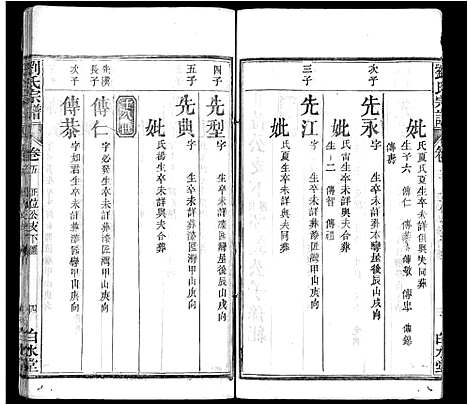 劉氏宗譜
妣
氏夏生卒未詳俱與夫同葬
生子六 傳仁
傳忠 傳錦
傳壽
次子
先永
字 生卒未詳葬本灣屋後辰山戌向
妣
氏雷生卒未詳與夫合葬
生二 傳智 傳福
三子
先江
字 生卒未詳葬
妣
氏夏生卒未詳與夫同葬
白水堂
四子
先型
字 生卒未詳葬漆匠灣屋後辰山戌向
五子
先典
字 生卒未詳葬漆匠灣甲山庚向
妣
氏 生卒未詳與夫合葬
十八世
先漢
長子
傳仁
字必發生卒未詳葬漆匠灣甲山庚向
次子
傳恭
字如君生卒未詳葬漆匠灣甲山庚向
劉氏宗譜
卷五
正位公支下
四
白水堂